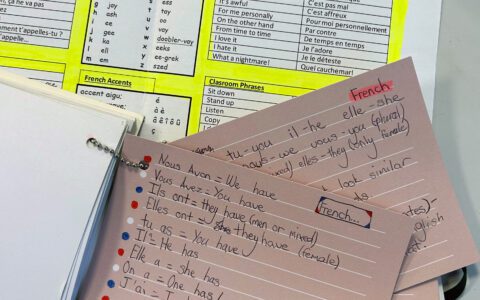 ça ne va pas
ment t'appelles-tu ?
t'appelle...
g jay
h ash
i ee
j gee
k ka
l ell
m em
s ess
t tay
u oo
v vay
w doobler-vay
x eeks
y ee-grek
z zed
It's awful C'est affreux
For me personally Pour moi personnellement
On the other hand Par contre
From time to time De temps en temps
I love it Je l'adore
I hate it Je le déteste
What a nightmare! Quel cauchemar!
French Accents
accent aigu;
accent grave;
é
à è
â ê î ô û
ç
Classroom Phrases
Sit down
Stand up
Listen
Copy
French
tu - you il - he elle - she
nous - we vous - you (plural)
elles - they (only female)
look similar
French...
Nous Avon = We have
Vous Avez = You have
Ils ont = they have (men or mixed)
Elles ont = they have (female)
tu as = You have
Il a = He has
Elle a = she has
On a = One has
J'ai = I